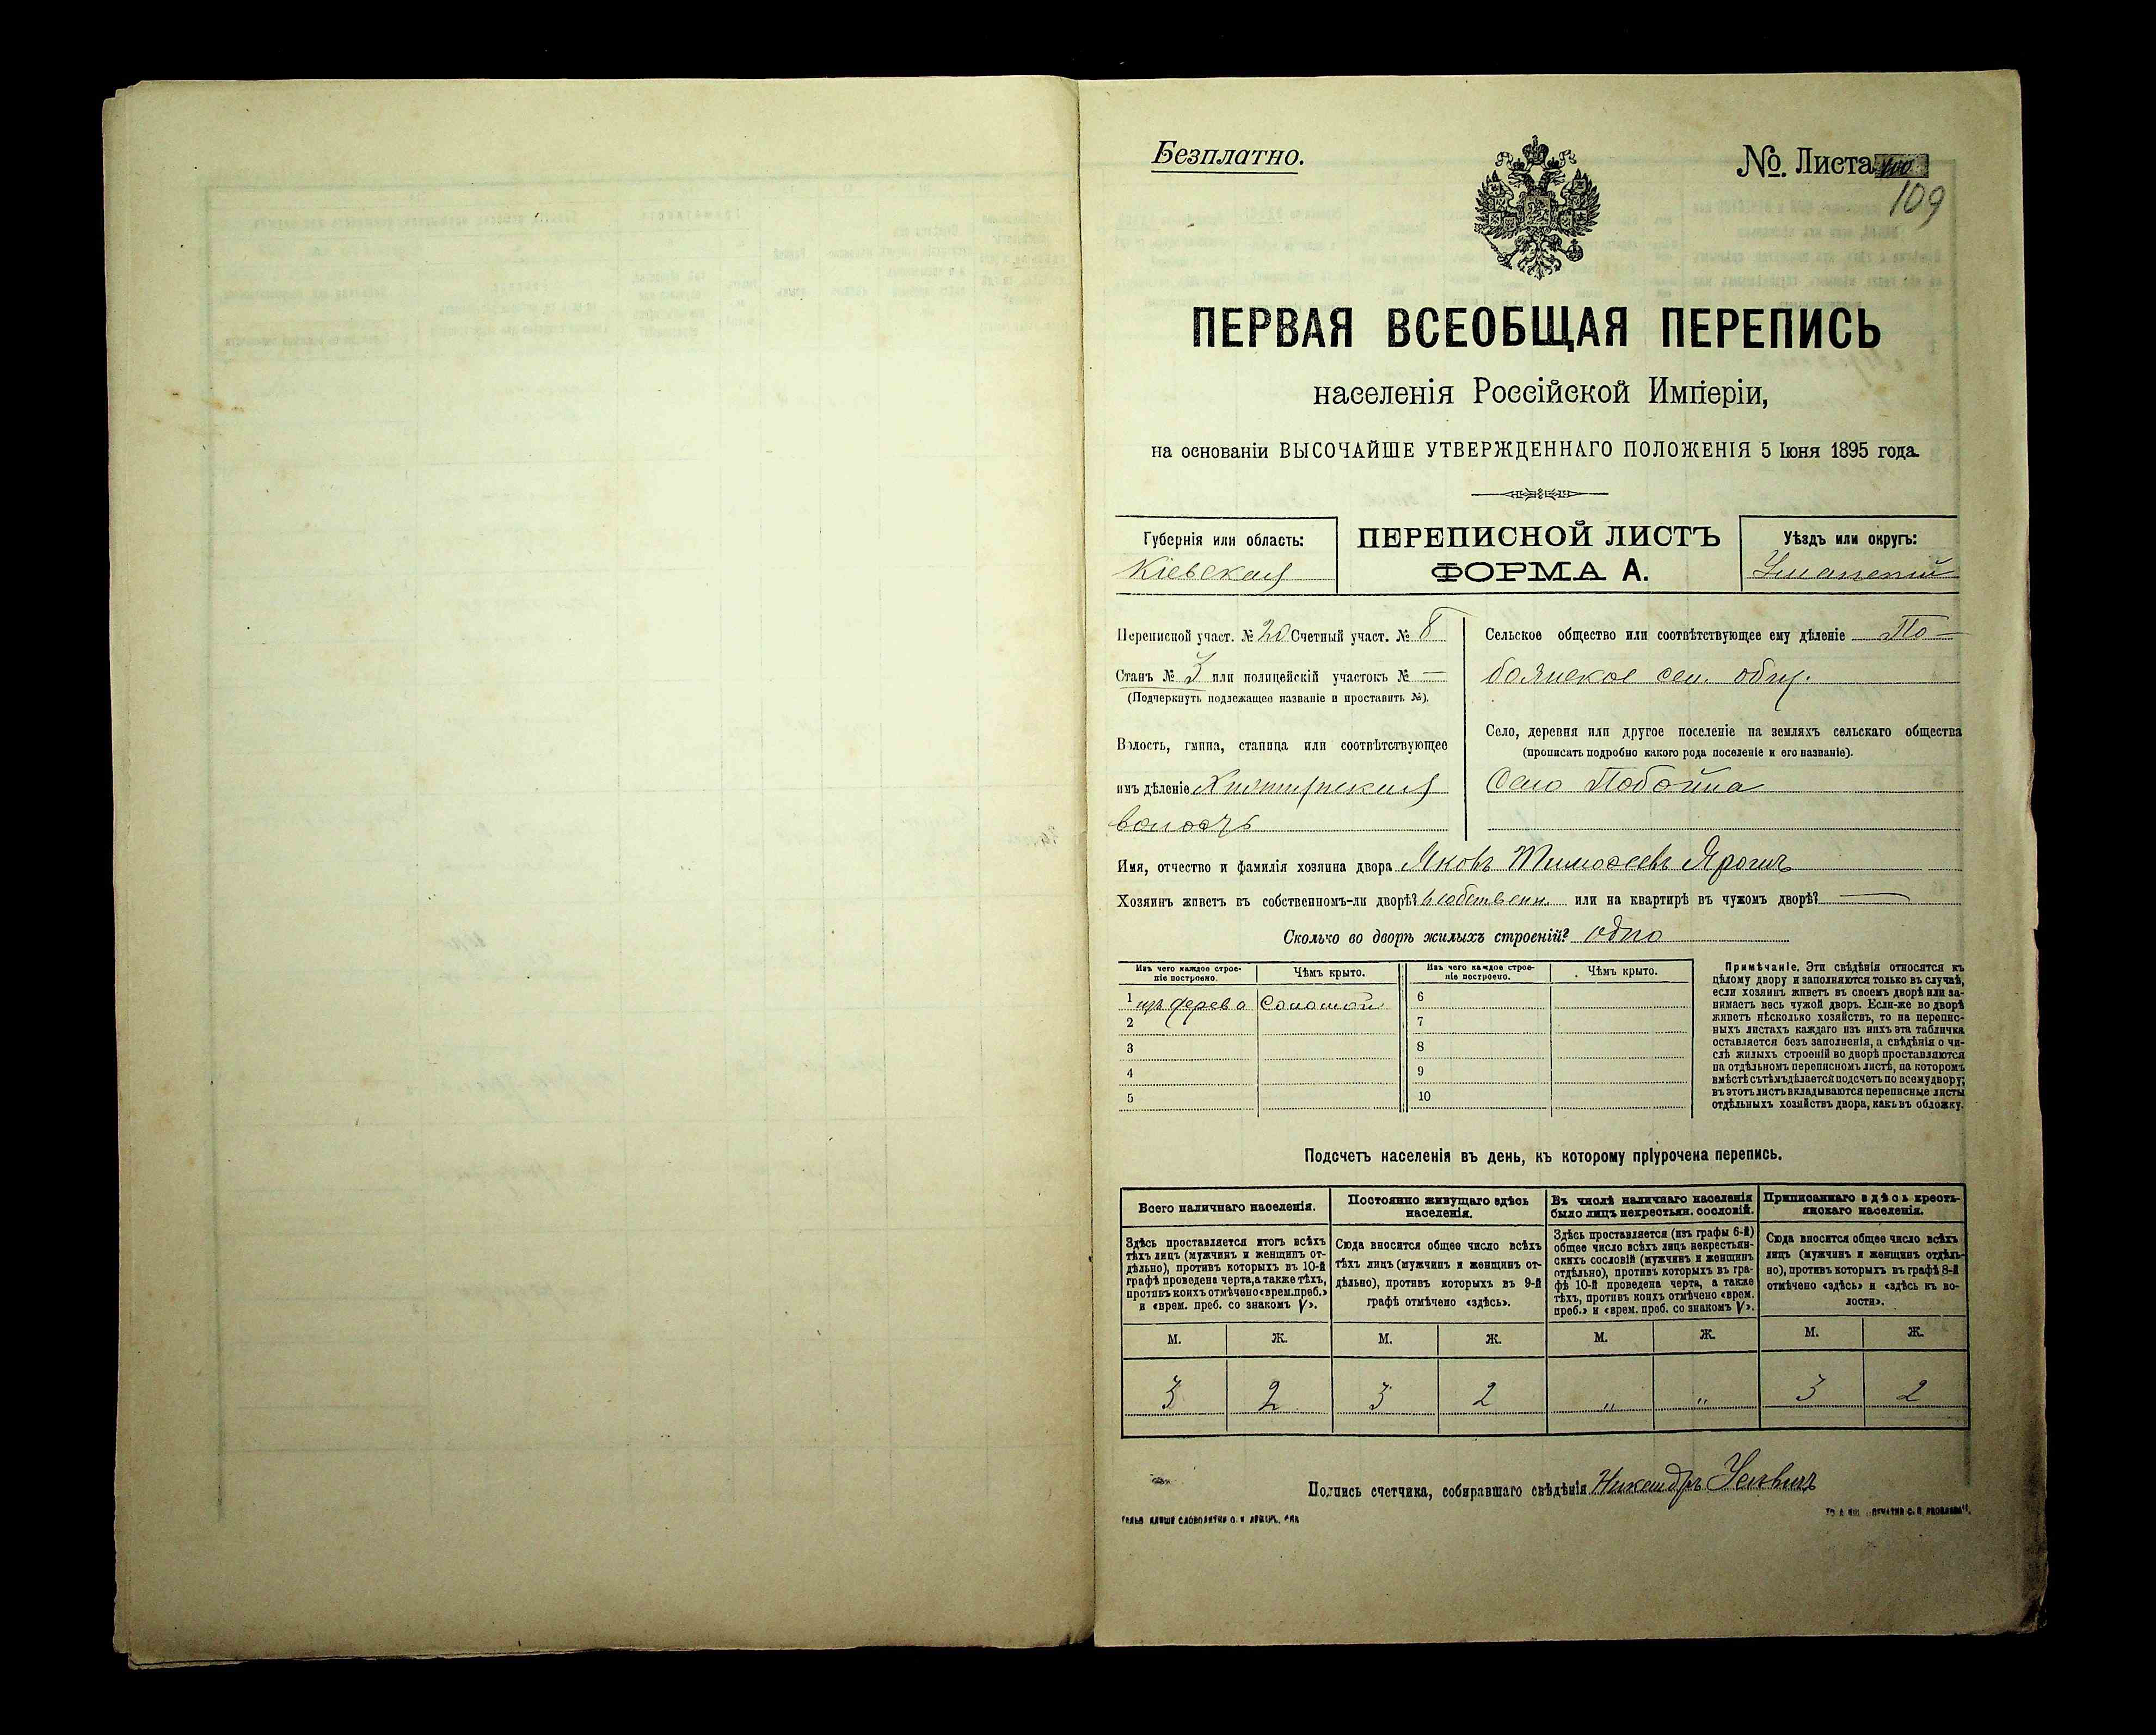 Безплатно.
№. Листа
109
ПЕРВАЯ ВСЕОБЩАЯ ПЕРЕПИСЬ
населенія Россійской Имперіи,
на основаніи ВЫСОЧАЙШЕ УТВЕРЖДЕННАГО ПОЛОЖЕНІЯ 5 Іюня 1895 года.
Губернія или область:
Кіевская
ПЕРЕПИСНОЙ ЛИСТЪ
ФОРМА А.
Уѣздъ или округъ:
Уманскій
Переписной участ. № 20 Счетный участ. № 8
Станъ № 3 или полицейскій участокъ № —
(Подчеркнуть подлежащее названіе и проставить №).
Волость, гмина, станица или соотвѣтствующее
имъ дѣленіе
волость
Сельское общество или соотвѣтствующее ему дѣленіе По-
боянское сел. общ.
Село, деревня или другое поселеніе на земляхъ сельскаго общества
(прописать подробно какого рода поселеніе и его названіе).
Село Побойна
Имя, отчество и фамилія хозяина двора Яковъ Тимофеевъ
Хозяинъ живетъ въ собственномъ-ли дворѣ? в собственн. или на квартирѣ въ чужомъ дворѣ? —
Сколько во дворѣ жилыхъ строеній? одно
Изъ чего каждое строе-
ніе построено.
Чѣмъ крыто.
Изъ чего каждое строе-
ніе построено.
Чѣмъ крыто.
1 изъ дерева Соломой
2
3
4
5
6
7
8
9
10
Примѣчаніе. Эти свѣдѣнія относятся къ
цѣлому двору и заполняются только въ случаѣ,
если хозяинъ живетъ въ своемъ дворѣ или за-
нимаетъ весь чужой дворъ. Если-же во дворѣ
живетъ нѣсколько хозяйствъ, то на перепис-
ныхъ листахъ каждаго изъ нихъ эта табличка
оставляется безъ заполненія, а свѣдѣнія о чи-
слѣ жилыхъ строеній во дворѣ проставляются
на отдѣльномъ переписномъ листѣ, на которомъ
вмѣстѣ съ тѣмъ дѣлается подсчетъ по всему двору;
въ этотъ листъ вкладываются переписные листы
отдѣльныхъ хозяйствъ двора, какъ въ обложку.
Подсчетъ населенія въ день, къ которому пріурочена перепись.
Всего наличнаго населенія.
Постоянно живущаго здѣсь
населенія.
Въ числѣ наличнаго населенія
было лицъ некрестьян. сословій.
Приписаннаго здѣсь кресть-
янскаго населенія.
Здѣсь проставляется итогъ всѣхъ
тѣхъ лицъ (мужчинъ и женщинъ от-
дѣльно), противъ которыхъ въ 10-й
графѣ проведена черта, а также тѣхъ,
противъ коихъ отмѣчено «врем. преб.»
и «врем. преб. со знакомъ V».
Сюда вносится общее число всѣхъ
тѣхъ лицъ (мужчинъ и женщинъ от-
дѣльно), противъ которыхъ въ 9-й
графѣ отмѣчено «здѣсь».
Здѣсь проставляется (изъ графы 6-й)
общее число всѣхъ лицъ некрестьян-
скихъ сословій (мужчинъ и женщинъ
отдѣльно), противъ которыхъ въ гра-
фѣ 10-й проведена черта, а также
тѣхъ, противъ коихъ отмѣчено «врем.
преб.» и «врем. преб. со знакомъ V».
Сюда вносится общее число всѣхъ
лицъ (мужчинъ и женщинъ отдѣль-
но), противъ которыхъ въ графѣ 8-й
отмѣчено «здѣсь» и «здѣсь къ во-
лости».
М. Ж. М. Ж. М. Ж. М. Ж.
3 2 3 2 „ „ 3 2
Подпись счетчика, собиравшаго свѣдѣнія Никандръ